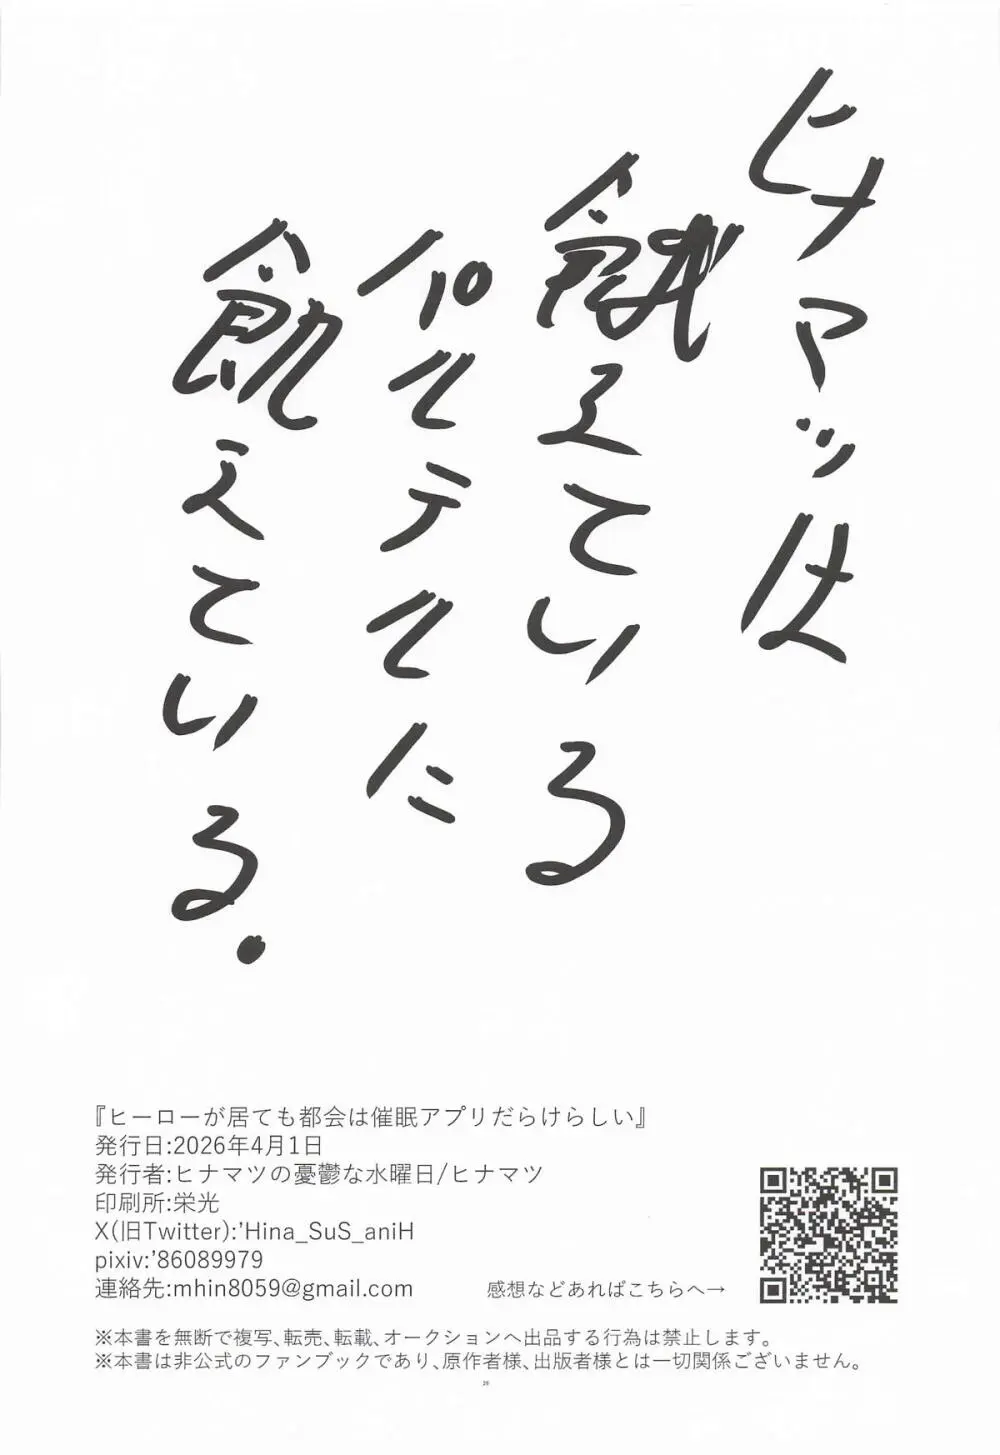 ヒナマツは
餓えている
パルテルに
飢えている.
『ヒーローが居ても都会は催眠アプリだらけらしい』
発行日:2026年4月1日
発行者:ヒナマツの憂鬱な水曜日/ヒナマツ
印刷所:栄光
X(旧Twitter):'Hina_SuS_aniH
pixiv:'86089979
連絡先:mhin8059@gmail.com
感想などあればこちらへ→
※本書を無断で複写、転売、転載、オークションへ出品する行為は禁止します。
※本書は非公式のファンブックであり、原作者様、出版者様とは一切関係ございません。
26